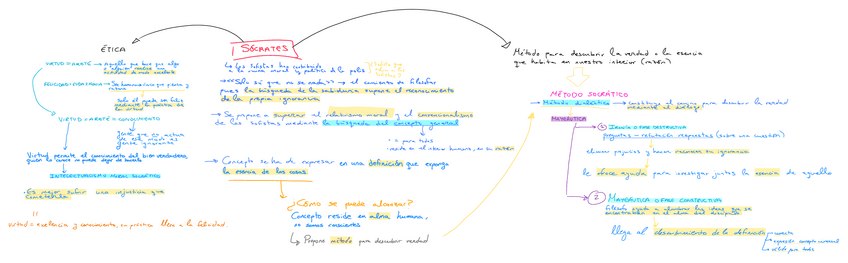 ÉTICA
VIRTUD = ARETÉ → Aquello que hace que algo
o alguien realice una
actividad de modo excelente
FELICIDAD = EUDAIMONÍA → Ser humano único que piensa y
razona
Solo él puede ser feliz
mediante la práctica de
la virtud
VIRTUD = ARETÉ = CONOCIMIENTO
gente que no actúa
de ese modo es
gente ignorante
Virtud permite el conocimiento del bien verdadero,
quien lo conoce no puede dejar de hacerlo
INTELECTUALISMO MORAL SOCRÁTICO
• Es mejor sufrir una injusticia que
cometerla
virtud = excelencia y conocimiento, su práctica lleva a la felicidad.
SÓCRATES
Los sofistas han contribuido
a la ruina moral y política de la polis
→ «Solo sé que no sé nada» → el comienzo de filosofar
pues la búsqueda de la sabiduría supone el reconocimiento
de la propia ignorancia
→ Se propone a superar el relativismo moral y el convencionalismo
de los sofistas mediante la búsqueda del concepto general
• = para todos
• reside en el interior humano, en su razón
→ Concepto se ha de expresar en una definición que exponga
la esencia de las cosas
¿Cómo se puede alcanzar?
Concepto reside en alma humana,
no somos conscientes
↳ Propone método para descubrir verdad
Método para descubrir la verdad o la esencia
que habita en nuestro interior (razón)
MÉTODO SOCRÁTICO
Método dialéctico → constituye el camino para descubrir la verdad
mediante el diálogo
MAYÉUTICA
1 IRONÍA O FASE DESTRUCTIVA
preguntas - refutación respuestas (sobre una cuestión)
eliminar prejuicios y hacer reconocer su ignorancia
le ofrece ayuda para investigar juntos la esencia de aquello
2 MAYÉUTICA O FASE CONSTRUCTIVA
Filósofo ayuda a alumbrar las ideas que se
encontraban en el alma del discípulo
llega al descubrimiento de la definición → correcta
→ expresión concepto universal
→ válido para todos